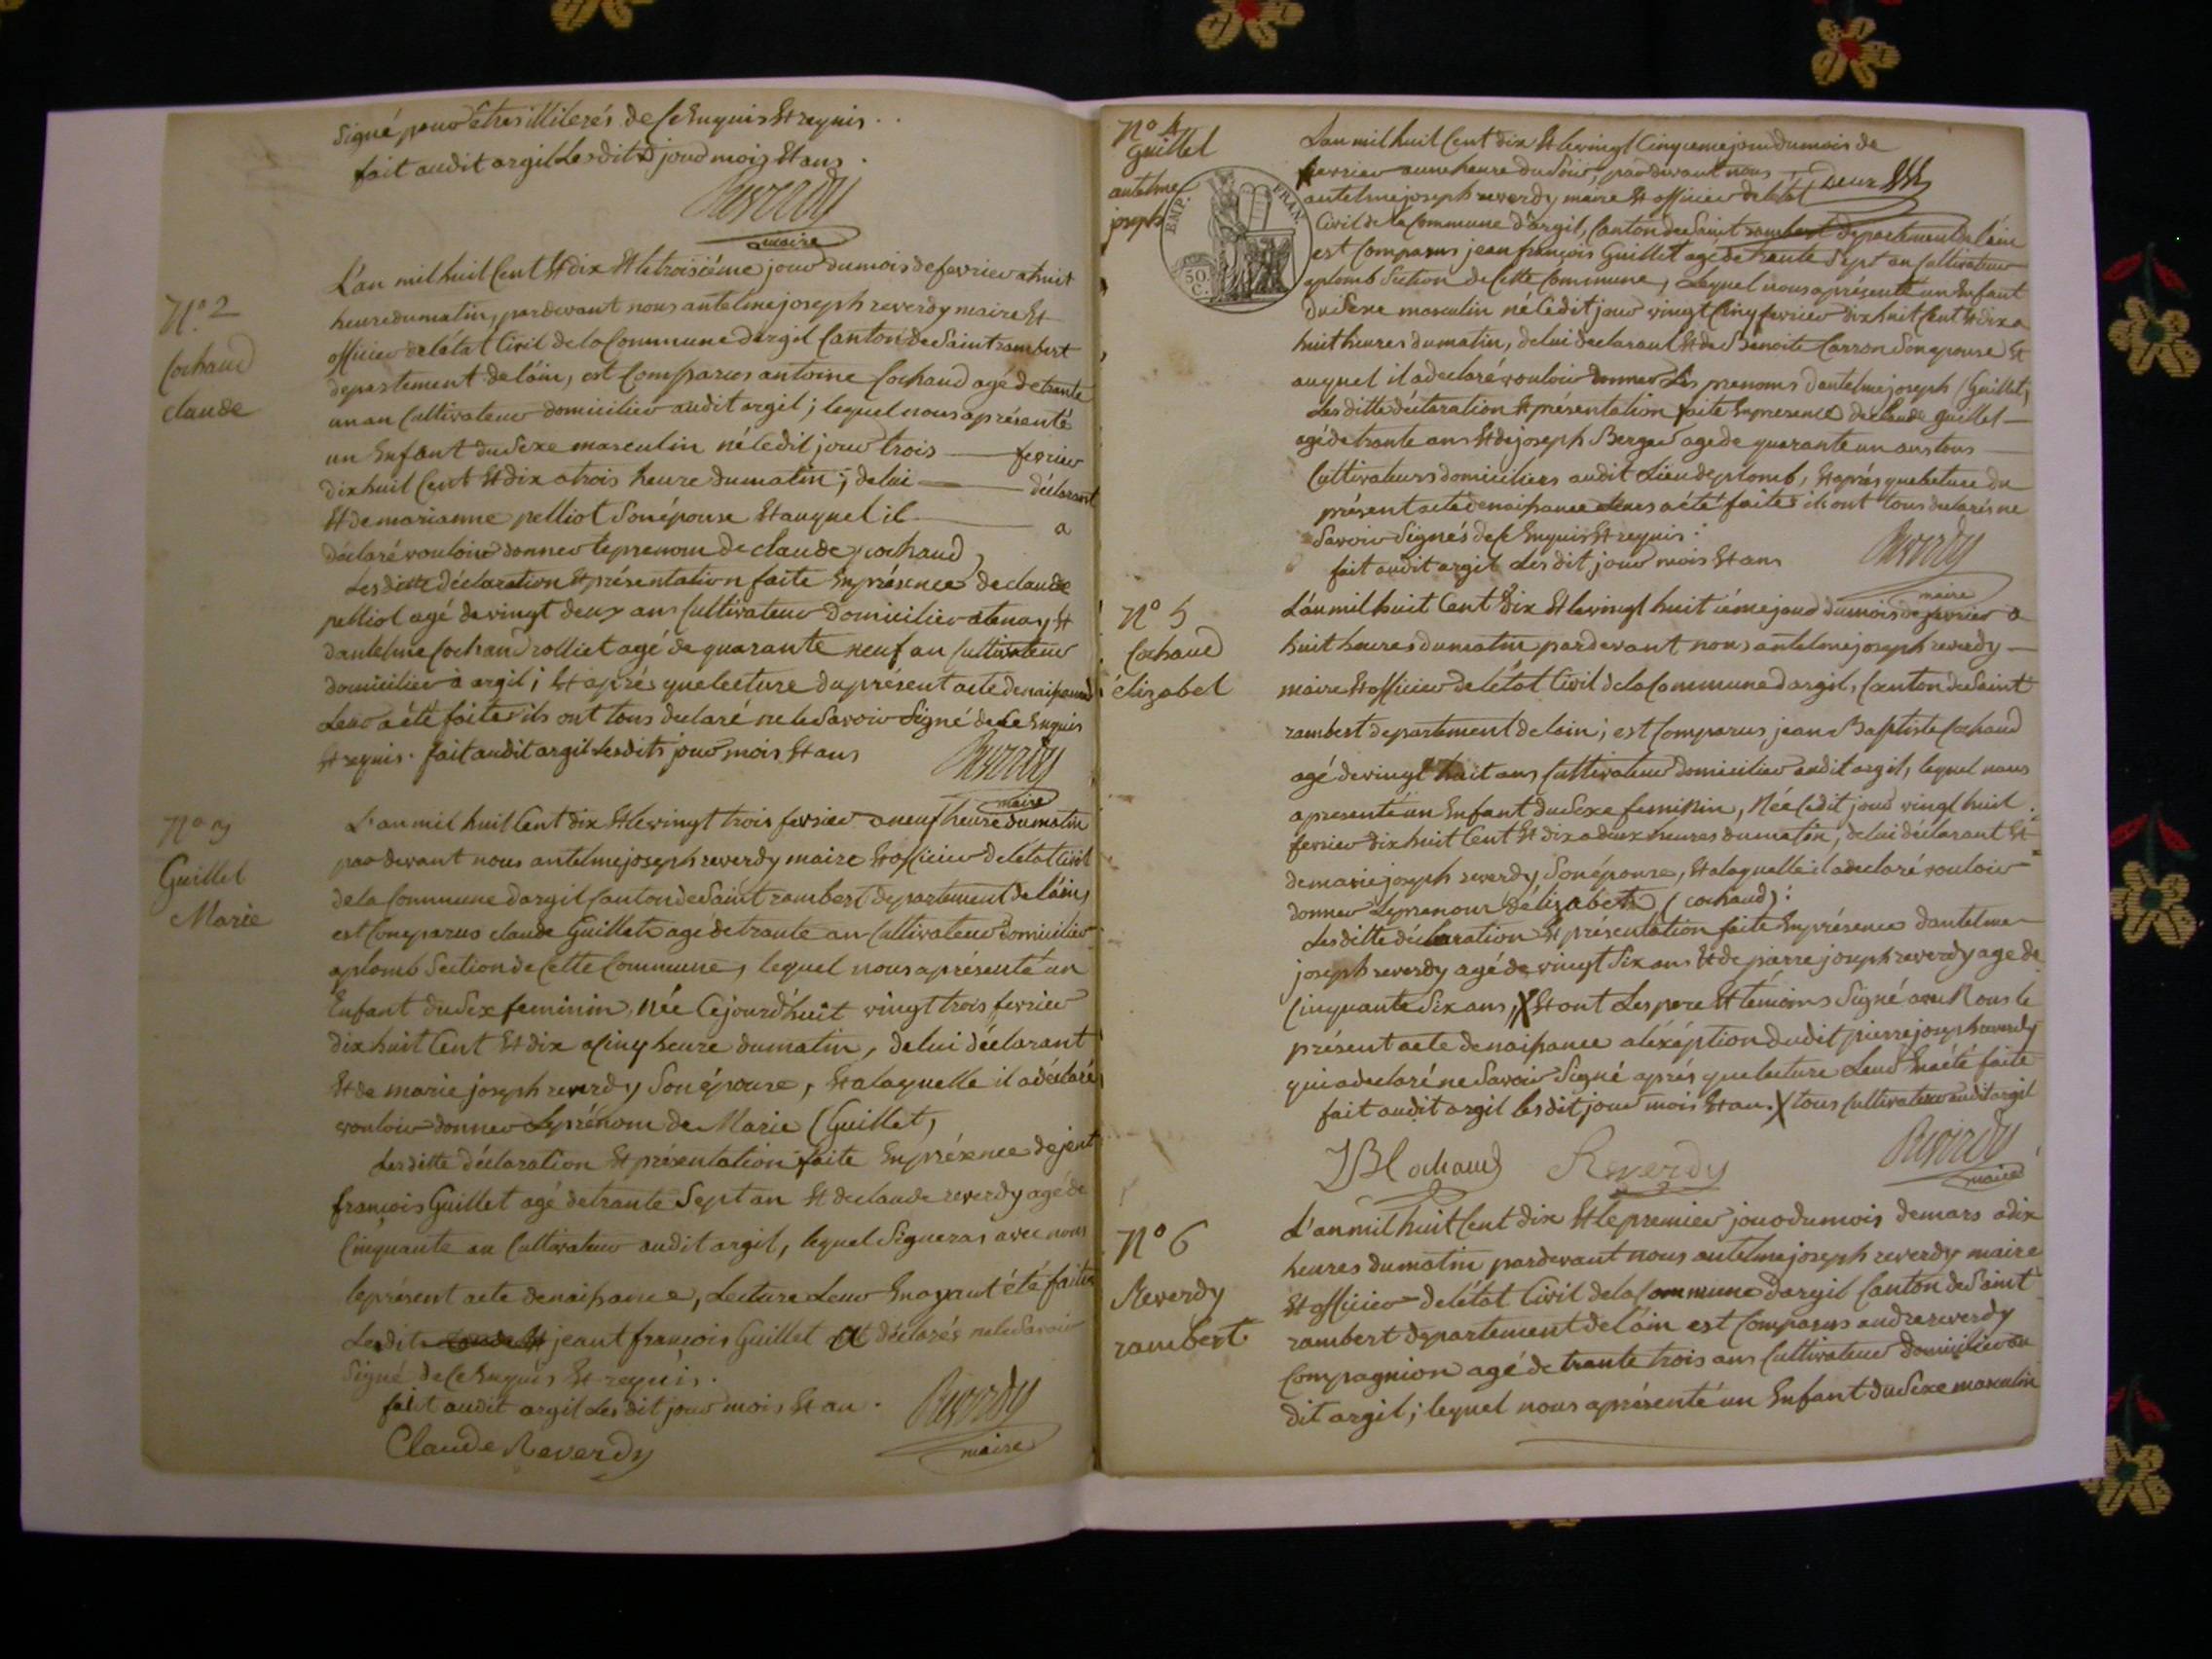 Signé pour êtres illiterés de ce Enquis Et requis.
fait audit argil Lesdit jour mois Et ans.
Reverdy
maire
N° 2
Cochaud
claude
L'an mil huit Cent Et dix Et le troisiéme jour du mois de fevrier a huit
heure du matin, pardevant nous antelme joseph reverdy maire Et
officier de létat Civil de la Commune d'argil Canton de Saint rambert
departement de láin, est Comparus antoine Cochaud agé de trante
un an Cultivateur domicilier audit argil; lequel nous a présenté
un Enfant du Sexe masculin né Cedit jour trois fevrier
dix huit Cent Et dix a trois heure du matin; de lui déclarant
Et de marianne pelliot Son épouse Et auquel il a
déclaré vouloir donner le prenom de claude Cochaud,
Lesditte déclaration Et présentation faite En présence de claude
pelliot agé de vingt deux ans Cultivateur domicilier a tenay Et
dantelme Cochaud rolliet agé de quarante neuf an Cultivateur
domicilier à argil; Et aprés que lecture du présent acte de naissance
Leur a été faite ils ont tous declaré ne le Savoir Signé de Ce Enquis
Et requis. fait audit argil Lesdits jour mois Et ans
Reverdy
maire
N° 3
Guillet
Marie
L'an mil huit Cent dix Et le vingt trois fevrier a neuf heure du matin
par devant nous antelme joseph reverdy maire Et officier de létat Civil
de la Commune dargil Canton de Saint rambert departement de láin,
est Comparus claude Guillet agé de trante an Cultivateur domicilier
a plomb Section de Cette Commune, lequel nous a présenté un
Enfant du Sex feminin, Née Cejourd'huit vingt trois fevrier
dix huit Cent Et dix a Cinq heure du matin, de lui déclarant
Et de marie joseph reverdy Son épouse, Et a laquelle il a déclaré
vouloir donner Le prénom de Marie (Guillet,
Lesditte déclaration Et présentation faite En présence de jent
françois Guillet agé de trante Sept an Et de claude reverdy agé de
Cinquante an Cultivateur audit argil, lequel Signeras avec nous
le présent acte de naissance, Lecture Leur En ayant été faite
Ledit jeant françois Guillet a déclarés ne le Savoir
Signé de Ce Enquis Et requis.
fait audit argil Lesdit jour mois Et an.
Reverdy
maire
Claude Reverdy
N° 4
Guillet
antelme
joseph
EMP. FRAN.
50 C.
L'an mil huit Cent dix Et le vingt Cinqieme jour du mois de
fevrier a une heure du Soir, par devant nous
antelme joseph reverdy maire Et officier de létat
Civil de la Commune d'argil, Canton de Saint rambert departement de láin
est Comparus jean françois Guillet agé de trante Sept an Cultivateur
a plomb Section de Cette Commune, Lequel nous a présenté un Enfant
du Sexe masculin né Cedit jour vingt Cinq fevrier dix huit Cent Et dix a
huit heures du matin, de lui declarant Et de Benoite Carron Son epouse Et
auquel il a declaré vouloir donner Les prenoms dantelme joseph (Guillet;
Lesditte déclaration Et présentation faite En presence de claude guillet
agé de trante ans Et de joseph Berger agé de quarante un ans tous
Cultivateurs domiciliers audit Lieu de plomb, Et aprés que lecture du
présent acte de naissance leurs a été faites ils ont tous declarés ne
Savoir Signés de Ce Enquis Et requis.
fait audit argil Lesdit jour mois Et ans
Reverdy
maire
N° 5
Cochaud
élizabet
L'an mil huit Cent dix Et le vingt huit iéme jour du mois de fevrier a
huit heures du matin pardevant nous antelme joseph reverdy
maire Et officier de létat Civil de la Commune d'argil, Canton de Saint
rambert departement de lain; est Comparus jean Baptiste Cochaud
agé de vingt huit ans Cultivateur domicilier audit argil, lequel nous
a presenté un Enfant du Sexe feminin, Née Cedit jour vingt huit
fevrier dix huit Cent Et dix a deux heures du matin, de lui déclarant Et
de marie joseph reverdy Son épouse, Et a laquelle il a declaré vouloir
donner Le prenom délizabet (cochaud):
Lesditte déclaration Et présentation faite En présence dantelme
joseph reverdy agé de vingt Six ans Et de pierre joseph reverdy agé de
Cinquante Six ans, X Et ont Les pere Et témoins Signé avec Nous le
présent acte de naissance a léxéption dudit pierre joseph reverdy
qui a declaré ne Savoir Signé aprés que lecture Leur En a été faite
fait audit argil lesdit jour mois Et an. X tous Cultivateur audit argil
JB Cochaud Reverdy
Reverdy
maire
N° 6
Reverdy
rambert.
L'an mil huit Cent dix Et le premier jour du mois de mars a dix
heures du matin pardevant nous antelme joseph reverdy maire
Et officier de létat Civil de la Commune dargil Canton de Saint
rambert departement de láin est Comparus andre reverdy
Compagnion agé de trante trois ans Cultivateur domicilier au
dit argil; lequel nous a présenté un Enfant du Sexe masculin